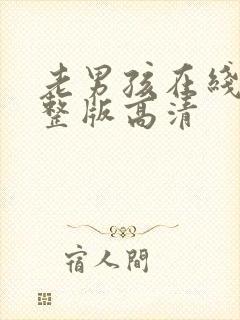 老男孩在线
整版高清
宿人間